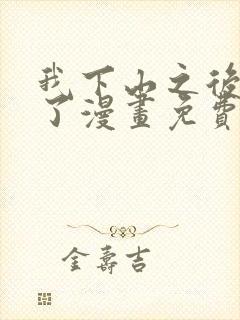 我下山之後
了漫畫免費
金壽吉